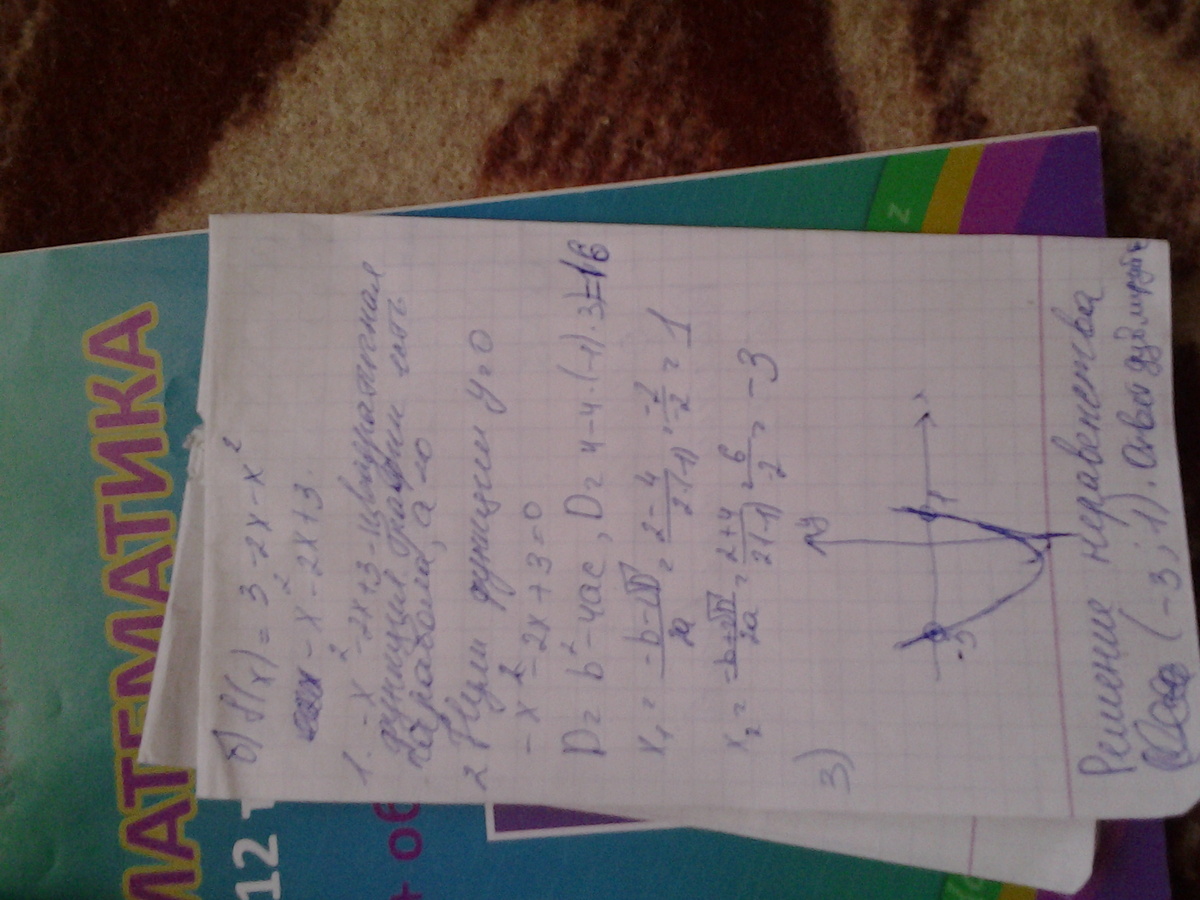 МАТЕМАТИКА
12
+ об
б) f(x) = 3 - 2x - x²
- x² - 2x + 3.
1. -x² - 2x + 3 - квадратная
функция, график
парабола, a <0
2 Нули функции y = 0
- x² - 2x + 3 = 0
D = b² - 4ac, D = 4 - 4 · (-1) · 3 = 16
x₁ = -b - √D / 2a = 2 - 4 / 2·(-1) = -2 / -2 = 1
x₂ = -b + √D / 2a = 2 + 4 / 2(-1) = 6 / -2 = -3
3)
y
-3
1
x
Решение неравенства
(-3; 1). Ответ
z